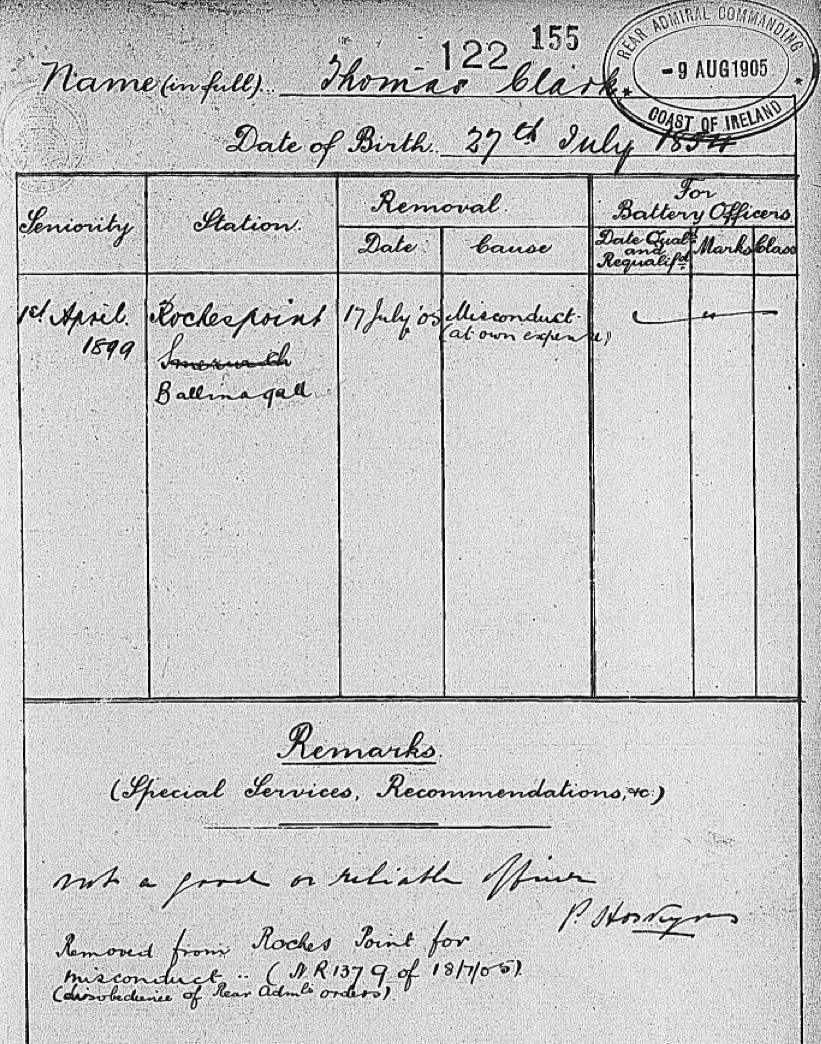 122 155
REAR ADMIRAL COMMANDING
-9 AUG 1905
COAST OF IRELAND
Name (in full).. Thomas Clark
Date of Birth.. 27th July 1854
Seniority Station. Removal. For Battery Officers
Date Cause Date Qualfd and Requalifd Marks Class
1st April. Rochespoint 17 July '05 Misconduct
1899 (at own expense)
Smerwick
Ballinagall
Remarks.
(Special Services, Recommendations, &c.)
not a good or reliable officer
P. Hoskyns
Removed from Roches Point for
misconduct .. (N.R 1379 of 18/7/05).
(disobedience of Rear Admls orders).